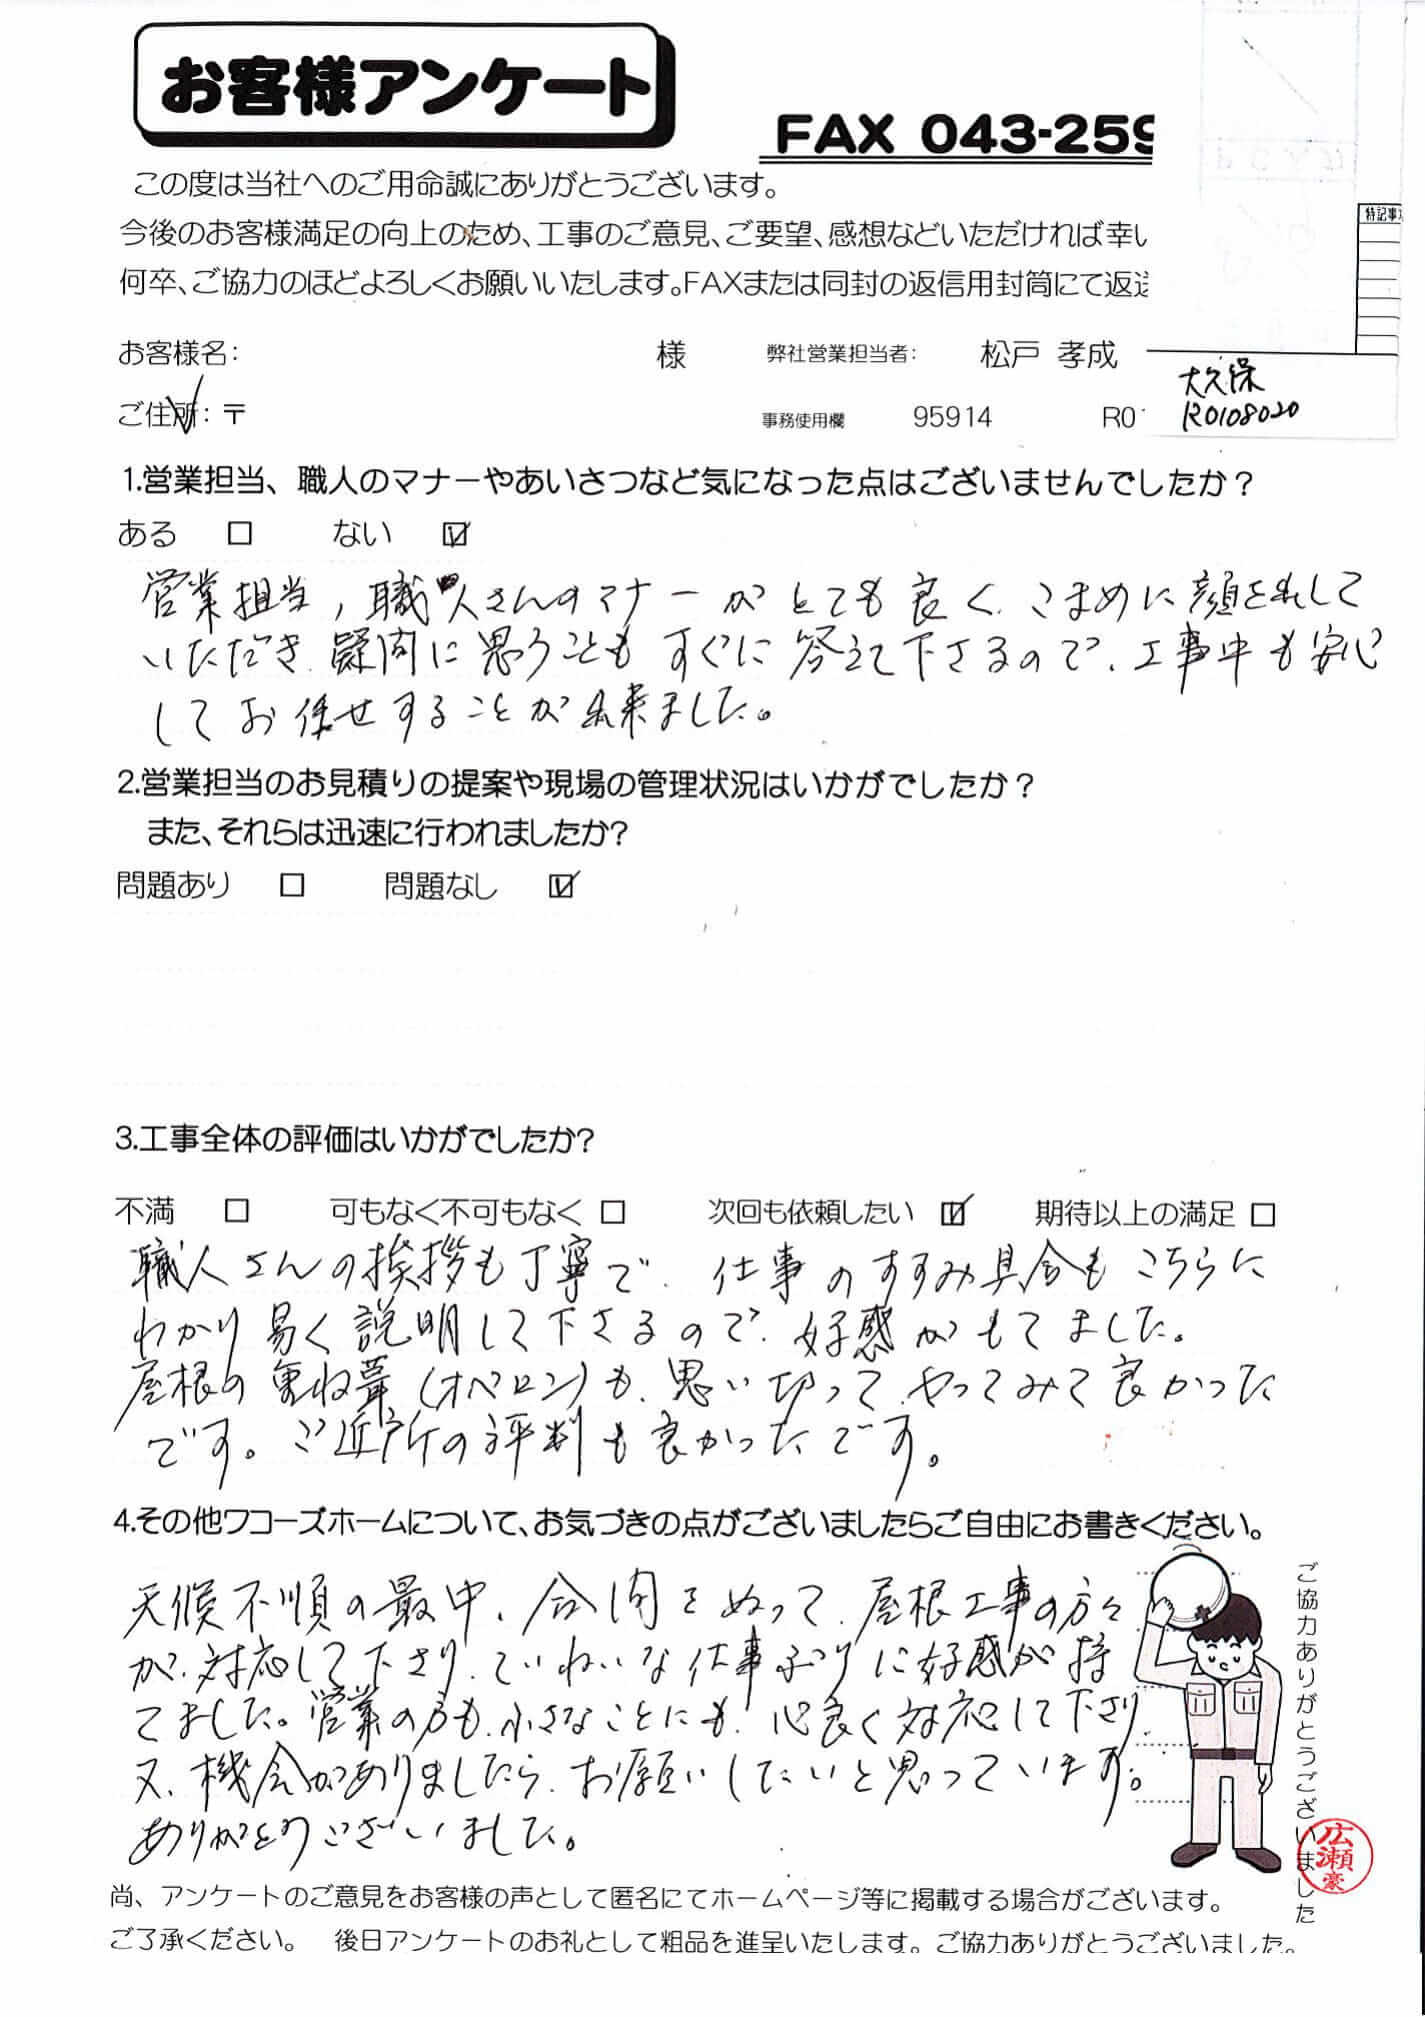 お客様アンケート
FAX 043-259
この度は当社へのご用命誠にありがとうございます。
今後のお客様満足の向上のため、工事のご意見、ご要望、感想などいただければ幸い
何卒、ご協力のほどよろしくお願いいたします。FAXまたは同封の返信用封筒にて返送
特記事項
お客様名: 様 弊社営業担当者: 松戸 孝成
大久保
ご住所: 〒 事務使用欄 95914 R01
R0108020
1.営業担当、職人のマナーやあいさつなど気になった点はございませんでしたか？
ある □ ない ☑
営業担当，職人さんのマナーがとても良く、こまめに顔を出して
いただき、疑問に思うこともすぐに答えて下さるので、工事中も安心
してお任せすることが出来ました。
2.営業担当のお見積りの提案や現場の管理状況はいかがでしたか？
また、それらは迅速に行われましたか?
問題あり □ 問題なし ☑
3.工事全体の評価はいかがでしたか?
不満 □ 可もなく不可もなく □ 次回も依頼したい ☑ 期待以上の満足 □
職人さんの挨拶も丁寧で、仕事のすすみ具合もこちらに
わかり易く説明して下さるので、好感がもてました。
屋根の重ね葺(オベロン)も、思い切って、やってみて良かった
です。ご近所の評判も良かったです。
4.その他ワコーズホームについて、お気づきの点がございましたらご自由にお書きください。
天候不順の最中、合間をぬって、屋根工事の方々
が、対応して下さり、ていねいな仕事ぶりに好感が持
てました。営業の方も、小さなことにも、心良く対応して下さり
又、機会がありましたら、お願いしたいと思っています。
ありがとうございました。
ご協力ありがとうございました
広瀬豪
尚、アンケートのご意見をお客様の声として匿名にてホームページ等に掲載する場合がございます。
ご了承ください。 後日アンケートのお礼として粗品を進呈いたします。ご協力ありがとうございました。